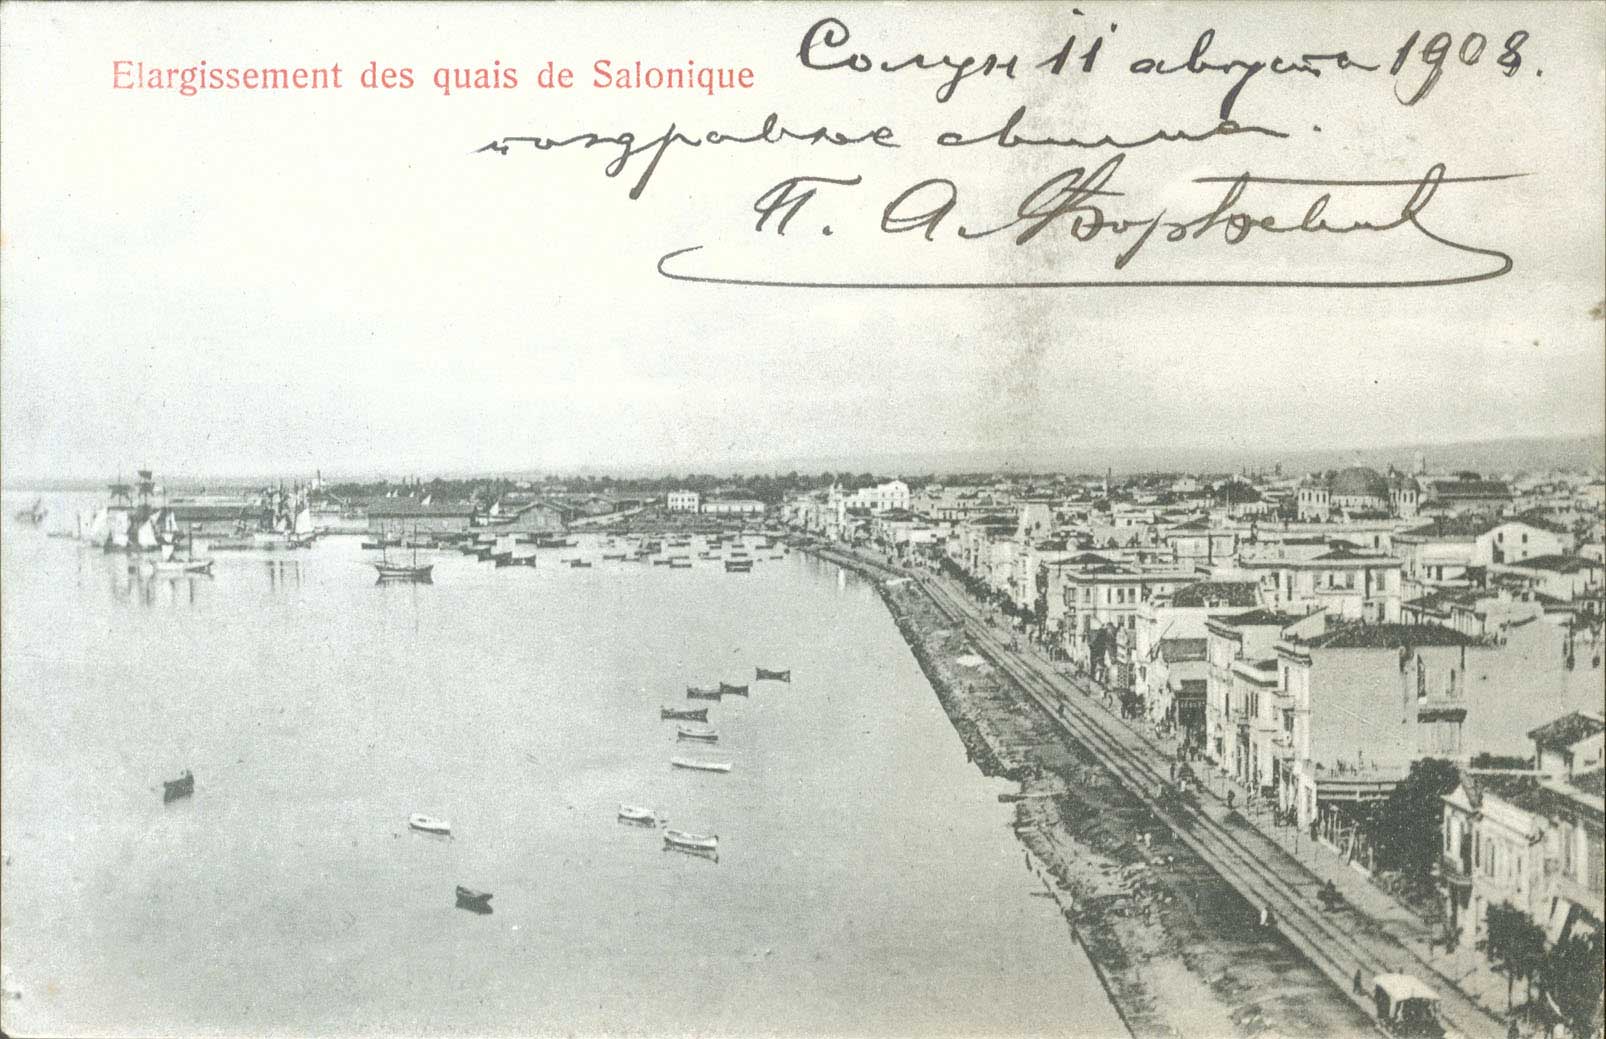 Elargissement des quais de Salonique
Солун 11 августа 1908.
поздравље свима.
П. А. Ђорђевић